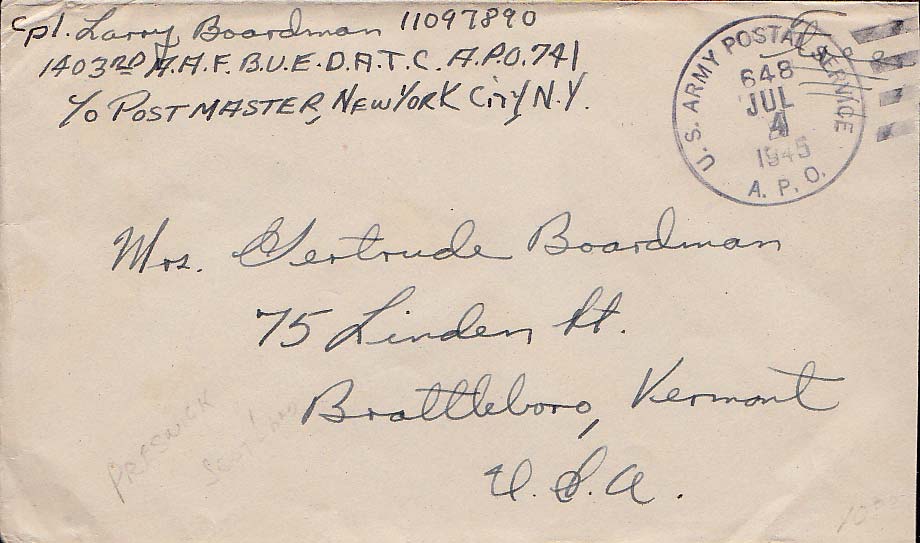 Cpl. Larry Boardman 11097890
1403RD A.A.F. B.U.E.D.A.T.C. A.P.O. 741
c/o POSTMASTER, NEW YORK CITY, N.Y.
U.S. ARMY POSTAL SERVICE
648
JUL
4
1945
A.P.O.
Free
Mrs. Gertrude Boardman
75 Linden St.
Brattleboro, Vermont
U.S.A.
PRESWICK
SCOTLAND